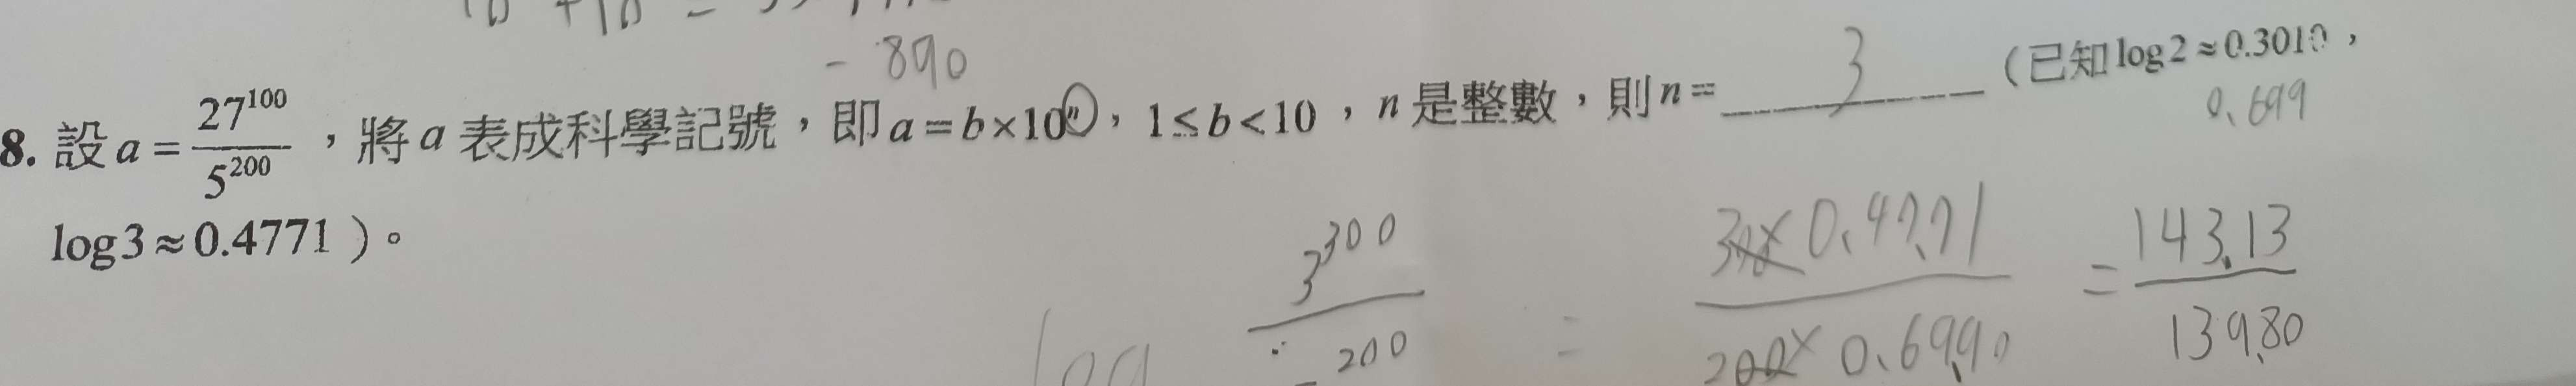 -890
8. 設 a = 27^100 / 5^200 ，將 a 表成科學記號，即 a = b × 10^n，1 ≤ b < 10，n 是整數，則 n = 3 （已知 log 2 ≈ 0.3010，
0.699
log 3 ≈ 0.4771）。
log 3^300 / 200 = 300 × 0.4771 / 200 × 0.6990 = 143.13 / 139.80